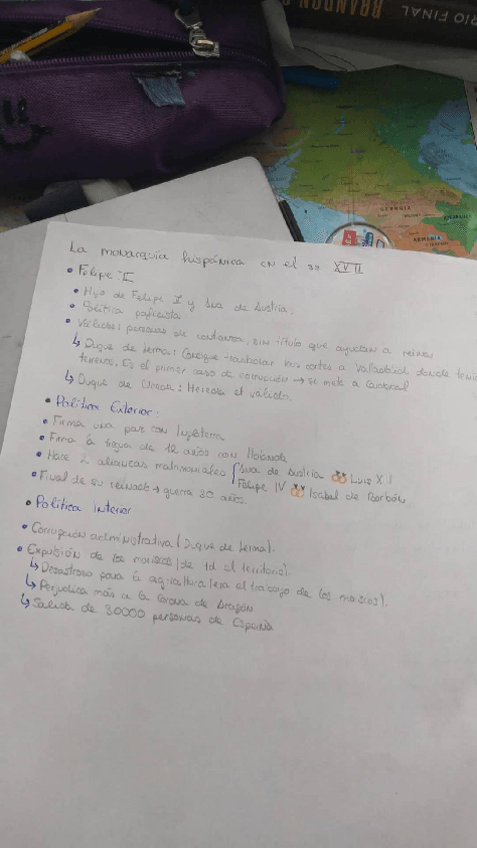 BRANDON
RIO FINAL
GEORGIA
ARMENIA
La monarquía hispánica en el s. XVII
• Felipe III
• Hijo de Felipe II y Ana de Austria.
• Política pacifista
• Válidos: personas de confianza, sin título que ayudan a reinar
↳ Duque de Lerma: Consigue trasladar las cortes a Valladolid donde tenía
terreno. Es el primer caso de corrupción → se mete a Cardenal
↳ Duque de Uceda: Hereda el válido.
• Política Exterior:
• Firma una paz con Inglaterra
• Firma la tregua de 12 años con Holanda
• Hace 2 alianzas matrimoniales { Ana de Austria 💍 Luis XIII
Felipe IV 💍 Isabel de Borbón
• Final de su reinado → guerra 30 años.
• Política interior
• Corrupción administrativa (Duque de Lerma).
• Expulsión de los moriscos (de td el territorio).
↳ Desastroso para la agricultura (era el trabajo de los moriscos).
↳ Perjudica más a la Corona de Aragón
↳ Salida de 30000 personas de España